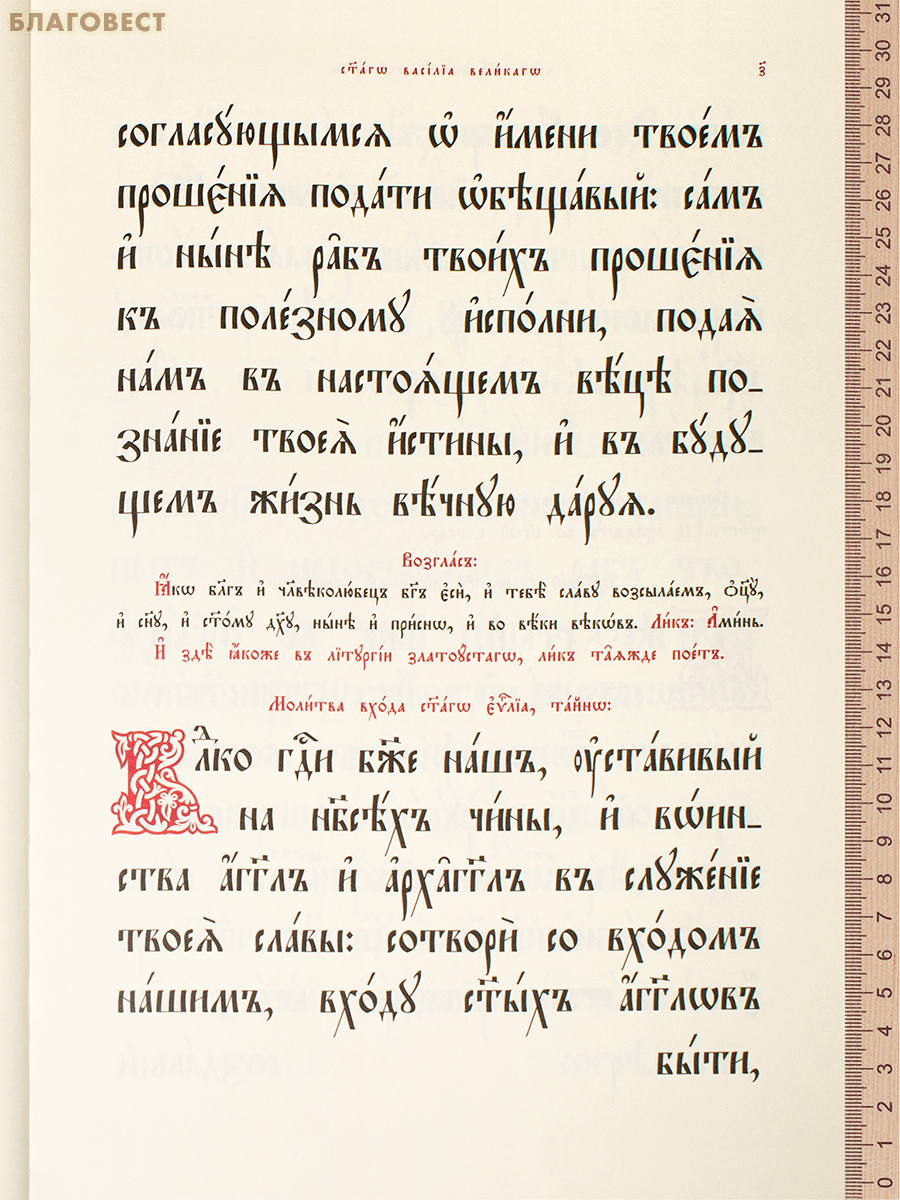 БЛАГОВЕСТ
ст҃а́гѡ васі́лїа вели́кагѡ з҃
согласꙋ́ющымсѧ ѡ҆ и҆́мени твое́мъ
проше́нїѧ пода́ти ѡ҆бѣща́вый: са́мъ
и҆ ны́нѣ ра̑бъ твои́хъ проше́нїѧ
къ поле́зномꙋ и҆спо́лни, подаѧ̀
на́мъ въ настоѧ́щемъ вѣ́цѣ по_
зна́нїе твоеѧ̀ и҆́стины, и҆ въ бꙋ́дꙋ_
щемъ жи́знь вѣ́чнꙋю да́рꙋѧ.
Возгла́съ:
Ꙗ҆́кѡ бл҃гъ и҆ чл҃вѣколю́бецъ бг҃ъ є҆сѝ, и҆ тебѣ̀ сла́вꙋ возсыла́емъ, ѻ҆ц҃ꙋ̀,
и҆ сн҃ꙋ, и҆ ст҃о́мꙋ дх҃ꙋ, ны́нѣ и҆ при́снѡ, и҆ во вѣ́ки вѣкѡ́въ. Ли́къ: А҆ми́нь.
И҆ здѣ̀ ꙗ҆́коже въ лїтꙋргі́и златоꙋ́стагѡ, ли́къ та̑ѧжде пое́тъ.
Моли́тва вхо́да ст҃а́гѡ є҆ѵⷢ҇лїа, та́йнѡ:
Влⷣко гдⷭ҇и бж҃е на́шъ, ᲂу҆ста́вивый
на нб҃сѣ́хъ чи́ны, и҆ вѡ́ин_
ства а҆́гг҃лъ и҆ а҆рха̑гг҃лъ въ слꙋже́нїе
твоеѧ̀ сла́вы: сотворѝ со вхо́домъ
на́шимъ, вхо́дꙋ ст҃ы́хъ а҆́гг҃лѡвъ
бы́ти,
31
30
29
28
27
26
25
24
23
22
21
20
19
18
17
16
15
14
13
12
11
10
9
8
7
6
5
4
3
2
1
0